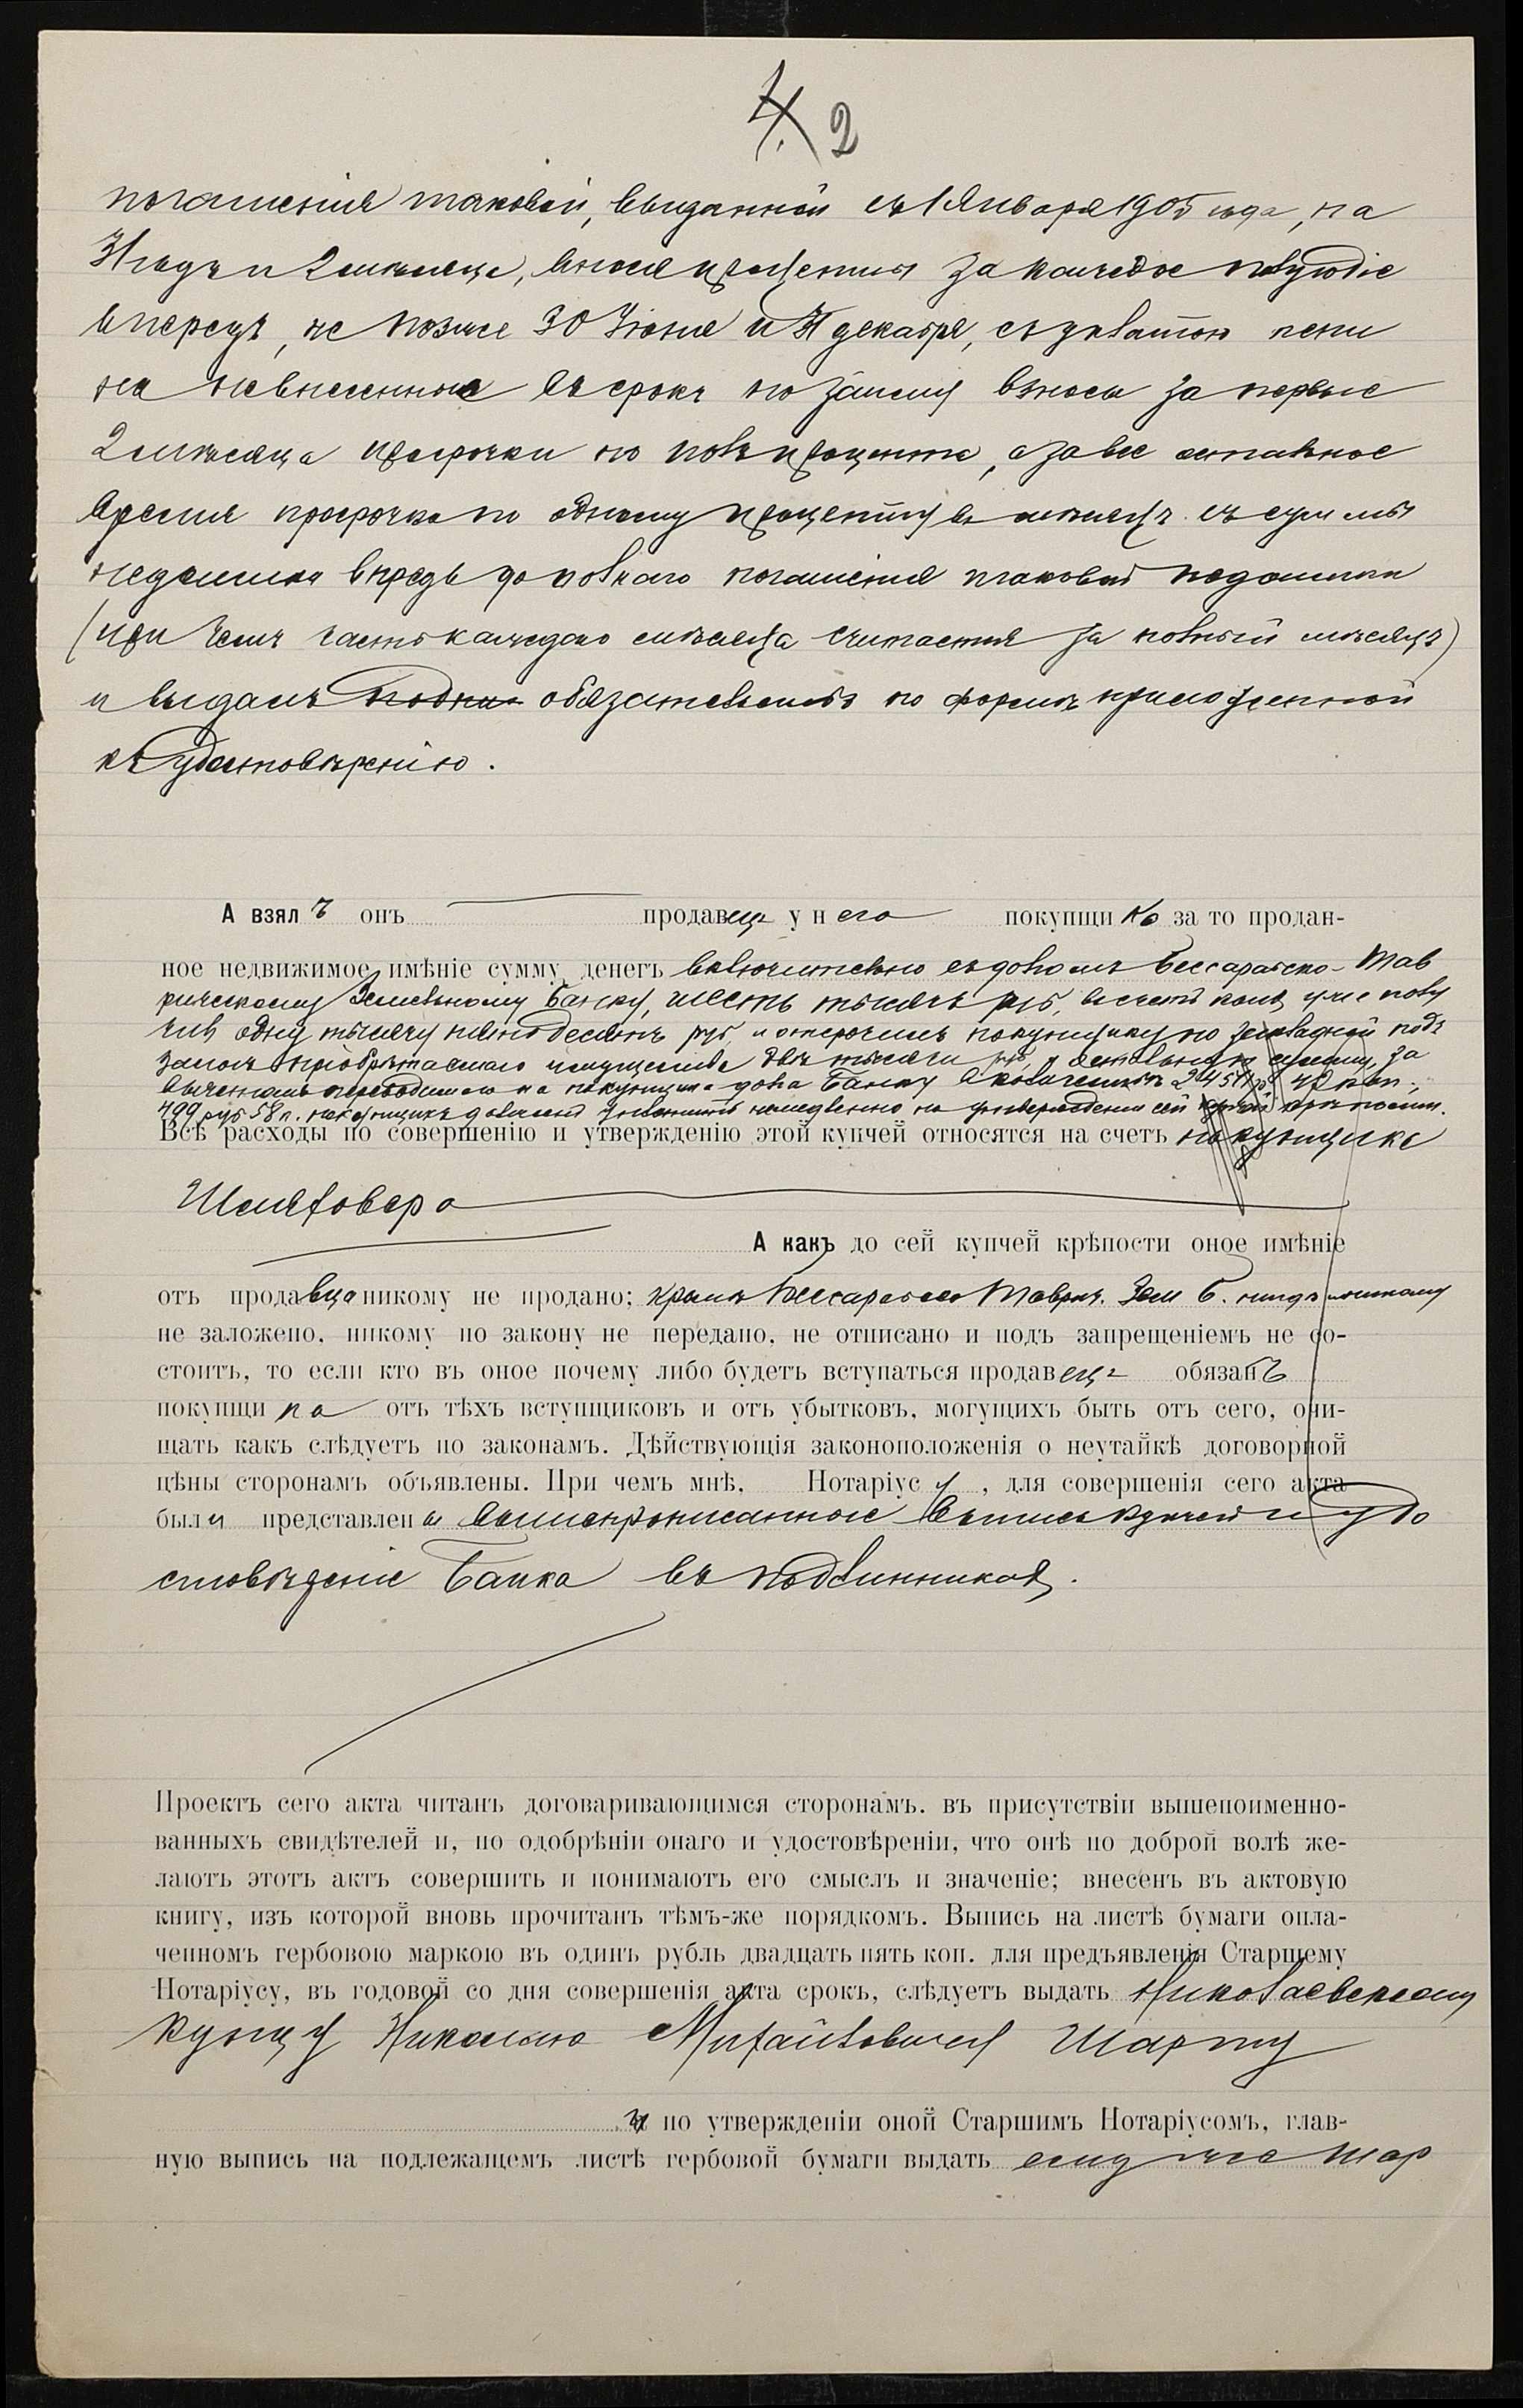 4. 2
погашенія таковой, выданной съ 1 Января 1905 года, на
31 годъ и 2 мѣсяца, внося проценты за каждое полугодіе
впередъ, не позже 30 Іюня и 31 декабря, съ уплатою пени
на невнесенные въ срокъ по займу взносы за первые
2 мѣсяца просрочки по полъ процента, а за все остальное
время просрочки по одному проценту въ мѣсяцъ съ суммы
недоимки впредь до полнаго погашенія таковой недоимки
(при чемъ часть каждаго мѣсяца считается за полный мѣсяцъ)
и выдалъ обязательство по формѣ приложенной
къ удостовѣренію.
А взялъ онъ продавецъ у него покупщика за то продан-
ное недвижимое имѣніе сумму денегъ включительно съ долгомъ Бессарабско-Тав
рическому Земельному Банку, шесть тысячъ руб, въ счетъ коихъ уже полу
чилъ одну тысячу пятьдесятъ руб, и отсрочилъ покупщику по закладной подъ
залогъ пріобрѣтаемаго имущества двѣ тысячи руб, а остальную сумму, за
вычетомъ переводимаго на покупщика долга Банку въ количествѣ 2451 р 42 коп.,
499 руб 58 к. покупщикъ долженъ уплатить немедленно по утвержденіи сей крѣпости.
Всѣ расходы по совершенію и утвержденію этой купчей относятся на счетъ покупщика
А какъ до сей купчей крѣпости оное имѣніе
отъ продавца никому не продано; кромѣ Бессарабско Таврич. Зем Б.
не заложено, никому по закону не передано, не отписано и подъ запрещеніемъ не со-
стоитъ, то если кто въ оное почему либо будетъ вступаться продавецъ обязанъ
покупщика отъ тѣхъ вступщиковъ и отъ убытковъ, могущихъ быть отъ сего, очи-
щать какъ слѣдуетъ по законамъ. Дѣйствующія законоположенія о неутайкѣ договорной
цѣны сторонамъ объявлены. При чемъ мнѣ, Нотаріусу, для совершенія сего акта
были представлены вышепрописанные выпись купчей и удо
стовѣреніе Банка въ подлинникахъ.
Проектъ сего акта читанъ договаривающимся сторонамъ, въ присутствіи вышепоименно-
ванныхъ свидѣтелей и, по одобрѣніи онаго и удостовѣреніи, что онѣ по доброй волѣ же-
лаютъ этотъ актъ совершить и понимаютъ его смыслъ и значеніе; внесенъ въ актовую
книгу, изъ которой вновь прочитанъ тѣмъ-же порядкомъ. Выпись на листѣ бумаги опла-
ченномъ гербовою маркою въ одинъ рубль двадцать пять коп. для предъявленія Старшему
Нотаріусу, въ годовой со дня совершенія акта срокъ, слѣдуетъ выдать Николаевскому
купцу Николаю Михайловичу
и по утвержденіи оной Старшимъ Нотаріусомъ, глав-
ную выпись на подлежащемъ листѣ гербовой бумаги выдать ему же